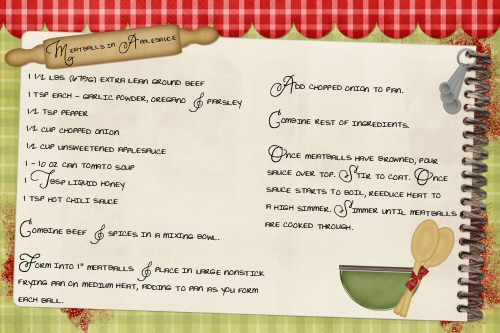 Meatballs in Applesauce
1 1/2 lbs (#796) extra lean ground beef
1 tsp each - garlic powder, oregano & parsley
1/2 tsp pepper
1/2 cup chopped onion
1/2 cup unsweetened applesauce
1 - 10 oz can tomato soup
1 Tbsp liquid honey
1 tsp hot chili sauce
Combine beef & spices in a mixing bowl.
Form into 1" meatballs & place in large nonstick
frying pan on medium heat, adding to pan as you form
each ball.
Add chopped onion to pan.
Combine rest of ingredients.
Once meatballs have browned, pour
sauce over top. Stir to coat. Once
sauce starts to boil, reeduce heat to
a high simmer. Simmer until meatballs
are cooked through.